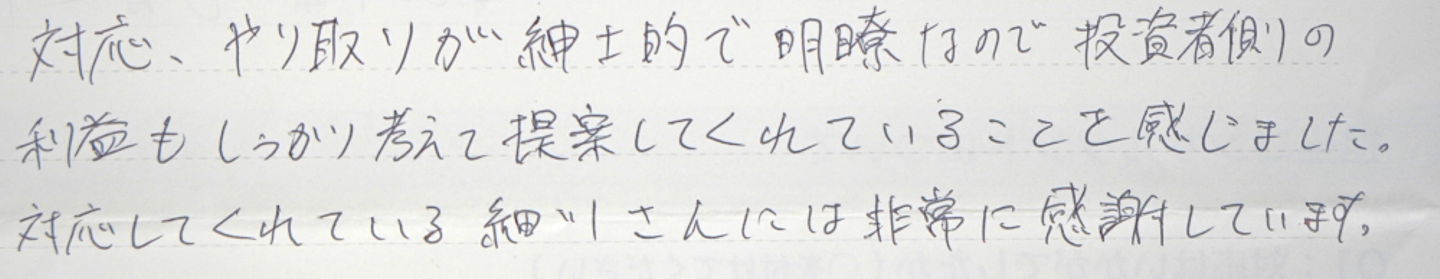 対応、やり取りが紳士的で明瞭なので投資者側の
利益もしっかり考えて提案してくれていることを感じました。
対応してくれている細川さんには非常に感謝しています。